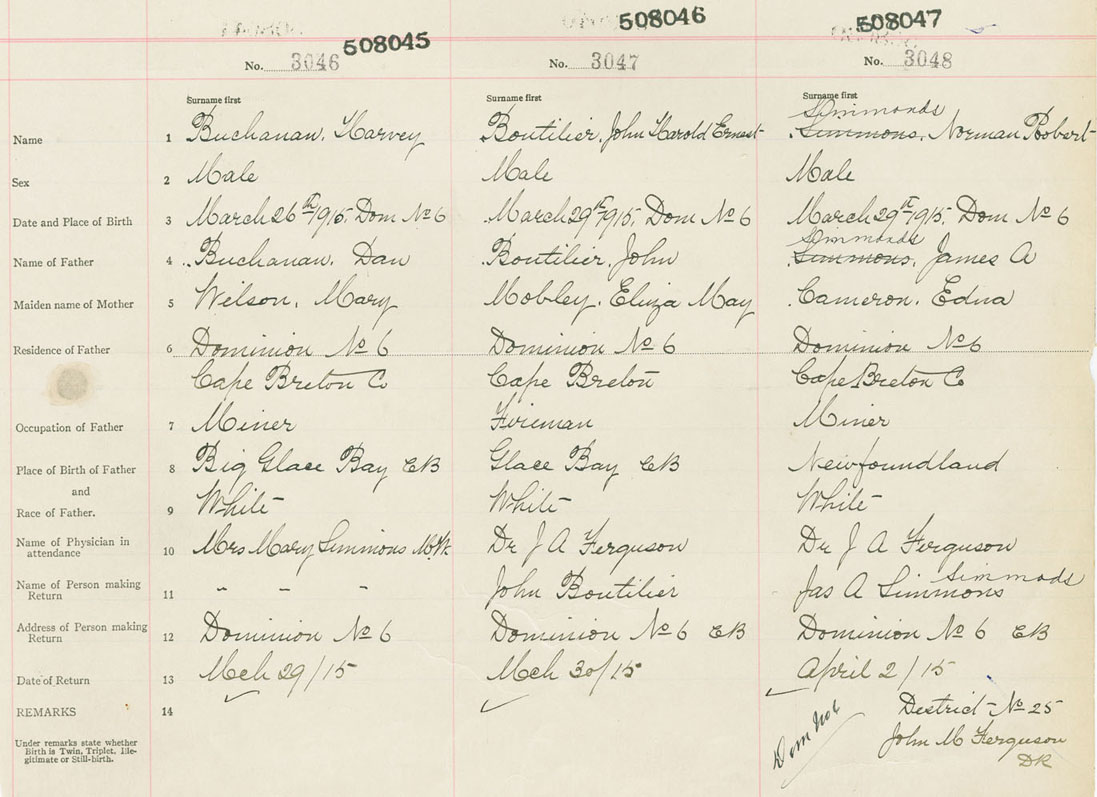 508045 508046 508047
No. 3046 No. 3047 No. 3048
Surname first Surname first Surname first
Simmonds
Name 1 Buchanan, Harvey Boutilier, John Harold Ernest Simmons, Norman Robert
Sex 2 Male Male Male
Date and Place of Birth 3 March 26th 1915, Dom No 6 March 29th 1915, Dom No 6 March 29th 1915, Dom No 6
Simmonds
Name of Father 4 Buchanan, Dan Boutilier, John Simmons, James A
Maiden name of Mother 5 Wilson, Mary Mobley, Eliza May Cameron, Edna
Residence of Father 6 Dominion No 6 Dominion No 6 Dominion No 6
Cape Breton Co Cape Breton Cape Breton Co
Occupation of Father 7 Miner Fireman Miner
Place of Birth of Father 8 Big Glace Bay CB Glace Bay CB Newfoundland
and
Race of Father. 9 White White White
Name of Physician in attendance 10 Mrs Mary Simmons M.W. Dr J A Ferguson Dr J A Ferguson
Simmods
Name of Person making Return 11 " " " John Boutilier Jas A Simmons
Address of Person making Return 12 Dominion No 6 Dominion No 6 CB Dominion No 6 CB
Date of Return 13 Mch 29/15 Mch 30/15 April 2/15
REMARKS 14 Dom No 6 District No 25
Under remarks state whether
Birth is Twin, Triplet, Ille-
gitimate or Still-birth.
John M Ferguson
DR